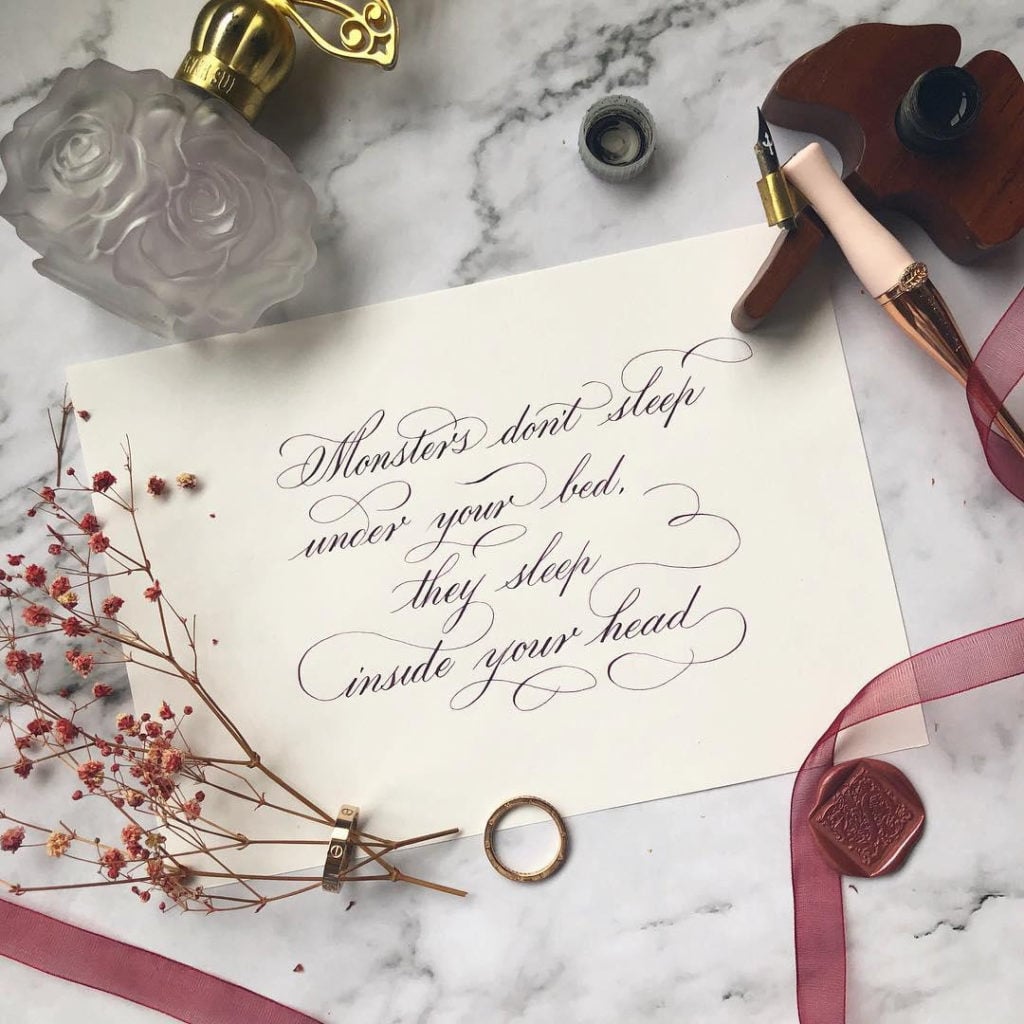 Monsters don't sleep
under your bed,
they sleep
inside your head